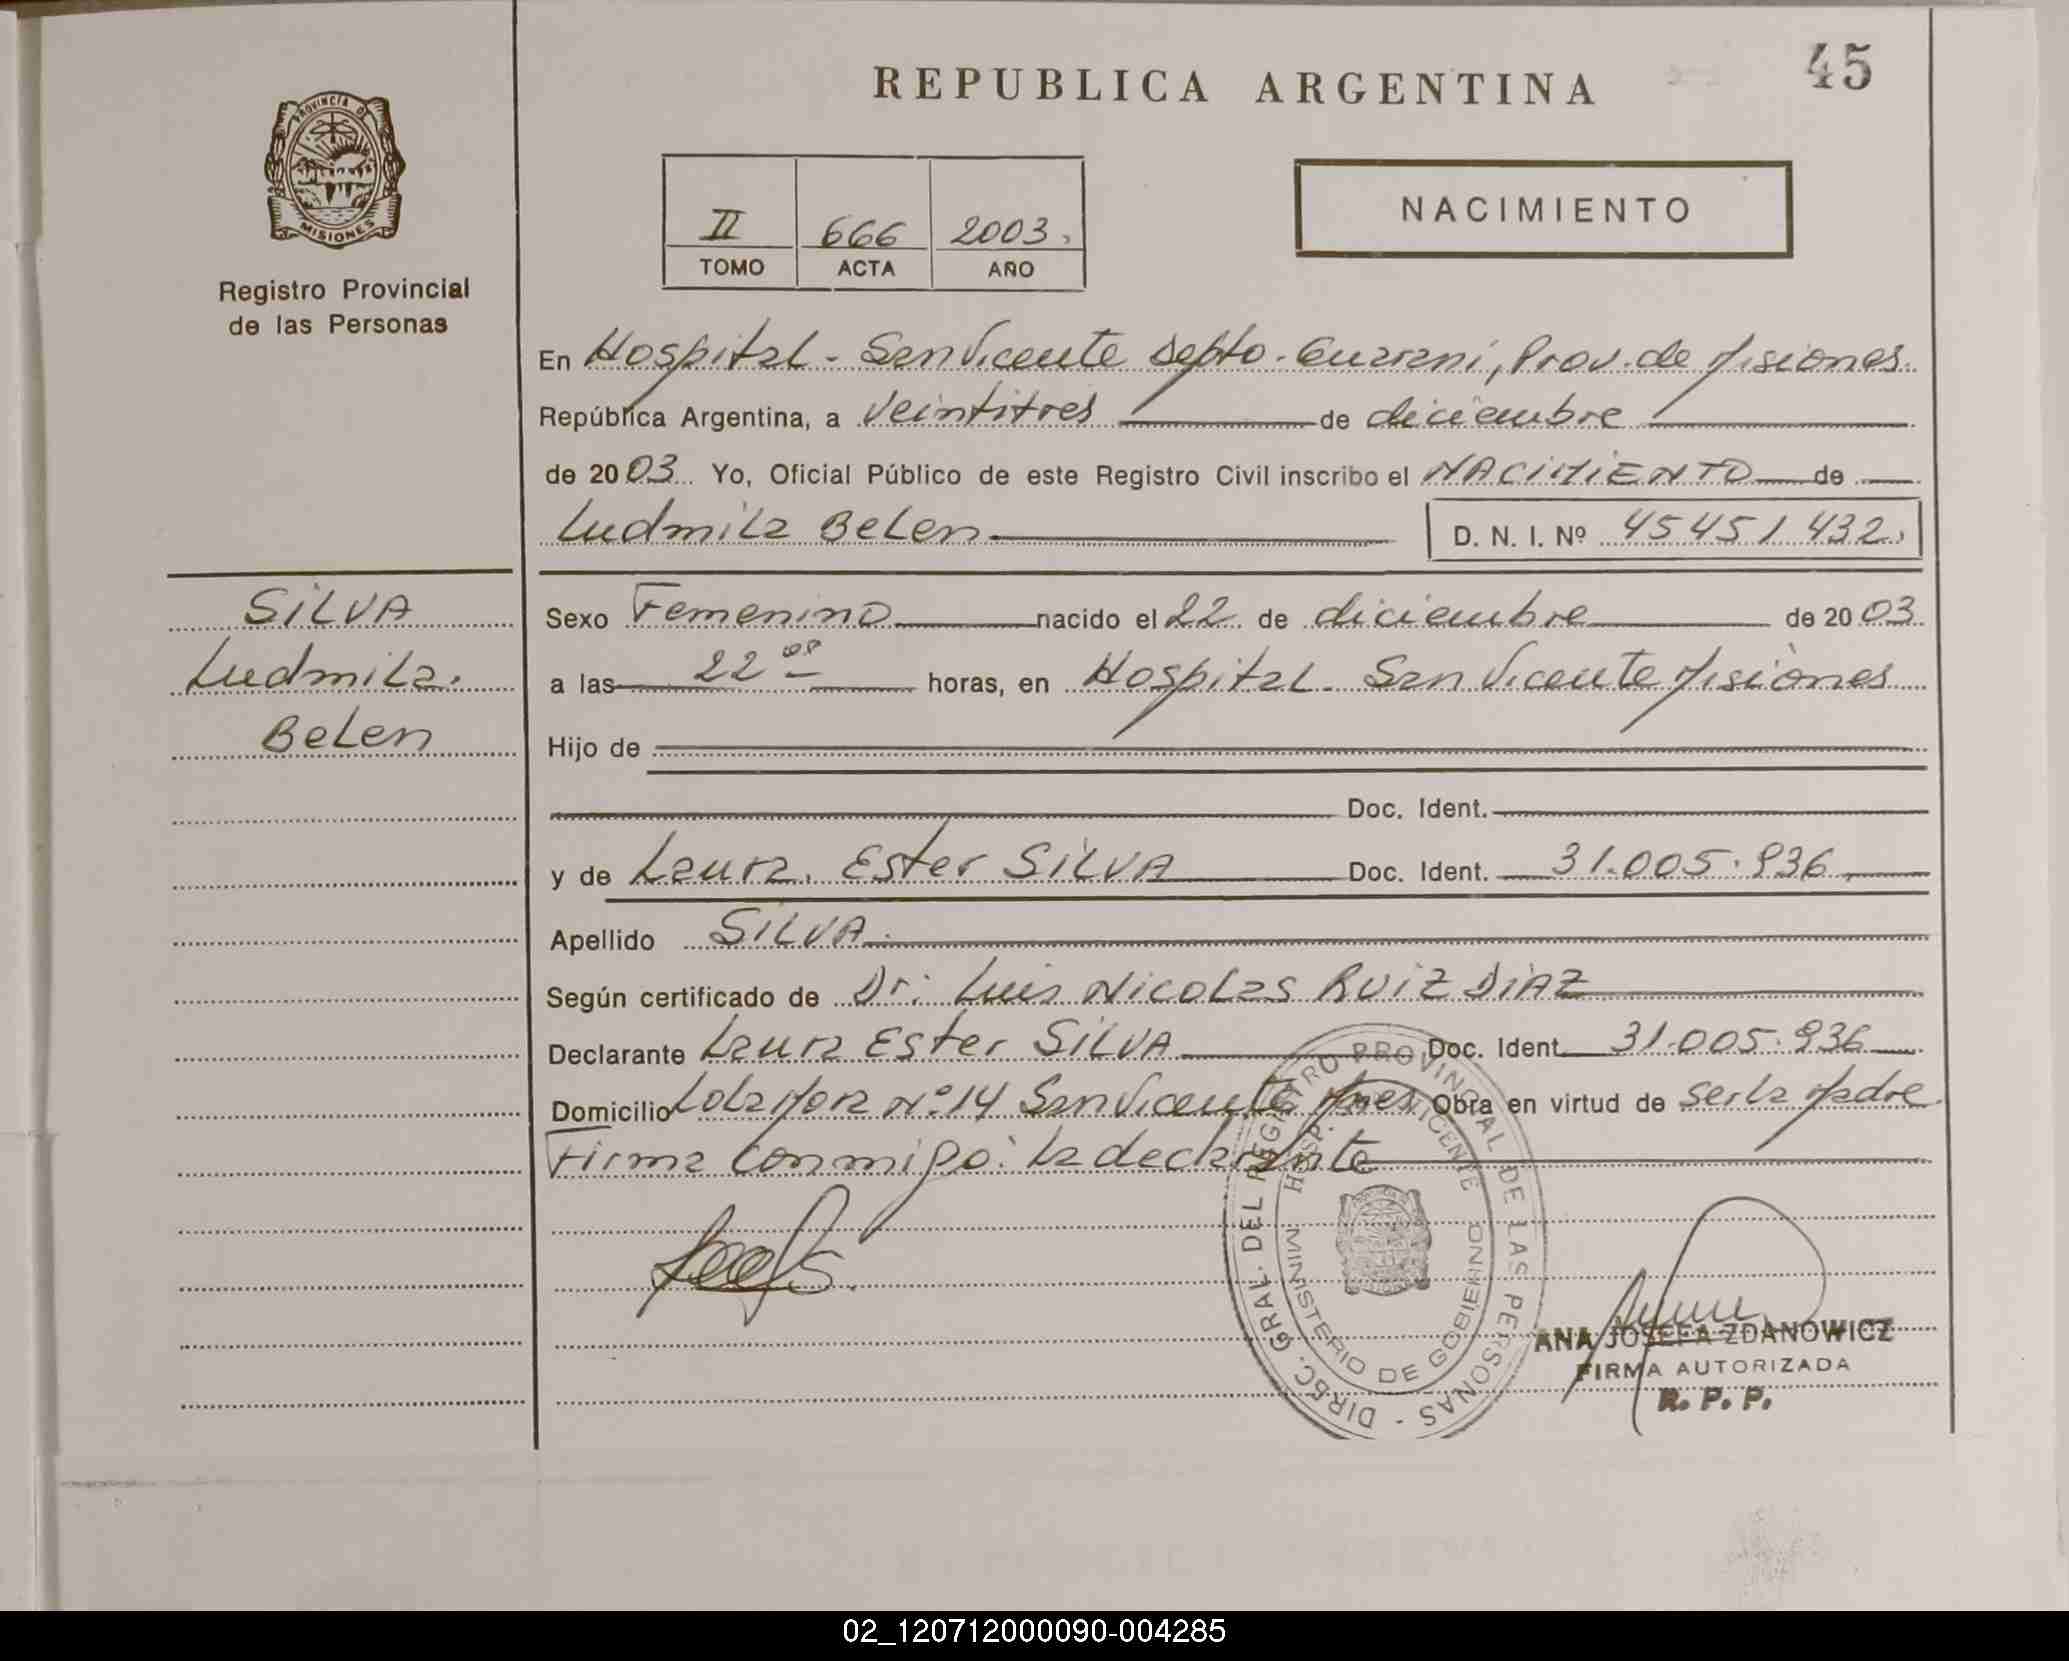 REPUBLICA ARGENTINA
45
PROVINCIA DE
MISIONES
Registro Provincial
de las Personas
II 666 2003
TOMO ACTA AÑO
NACIMIENTO
En Hospital - San Vicente Depto. Guarani, Prov. de Misiones
República Argentina, a veintitres de diciembre
de 2003 Yo, Oficial Público de este Registro Civil inscribo el NACIMIENTO de
Ludmila Belen D. N. I. Nº 45451432
SILVA
Ludmila
Belen
Sexo Femenino nacido el 22 de diciembre de 2003
a las 22 horas, en Hospital - San Vicente Misiones
Hijo de
Doc. Ident.
y de Laura Ester SILVA Doc. Ident. 31.005.936
Apellido SILVA
Según certificado de Dr. Luis Nicolas RUIZ DIAZ
Declarante Laura Ester SILVA Doc. Ident. 31.005.936
Domicilio Lola Mora Nº 14 San Vicente Mnes Obra en virtud de ser la Madre
Firma conmigo: la declarante
DIREC. GRAL. DEL REGISTRO PROVINCIAL DE LAS PERSONAS -
HOSP. VICENTE
MINISTERIO DE GOBIERNO
ANA JOSEFA ZDANOWICZ
FIRMA AUTORIZADA
R. P. P.
02_120712000090-004285